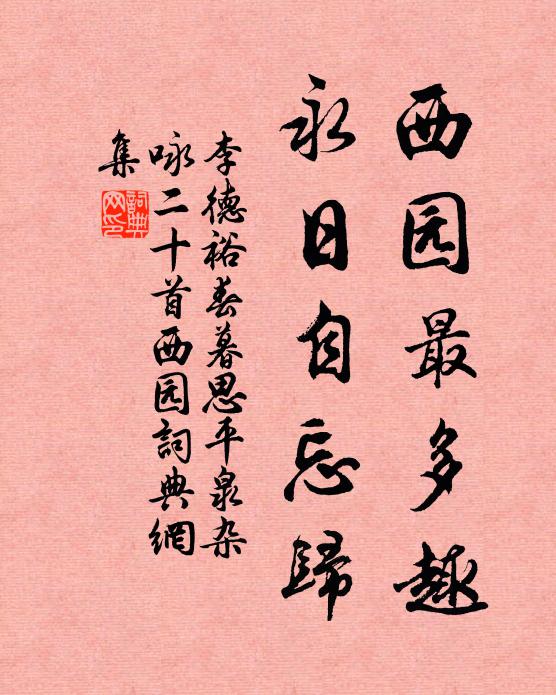 西园最多趣
永日自忘歸
李德裕春暮思平泉杂
咏二十首西园詞典網
集
詞典
网印